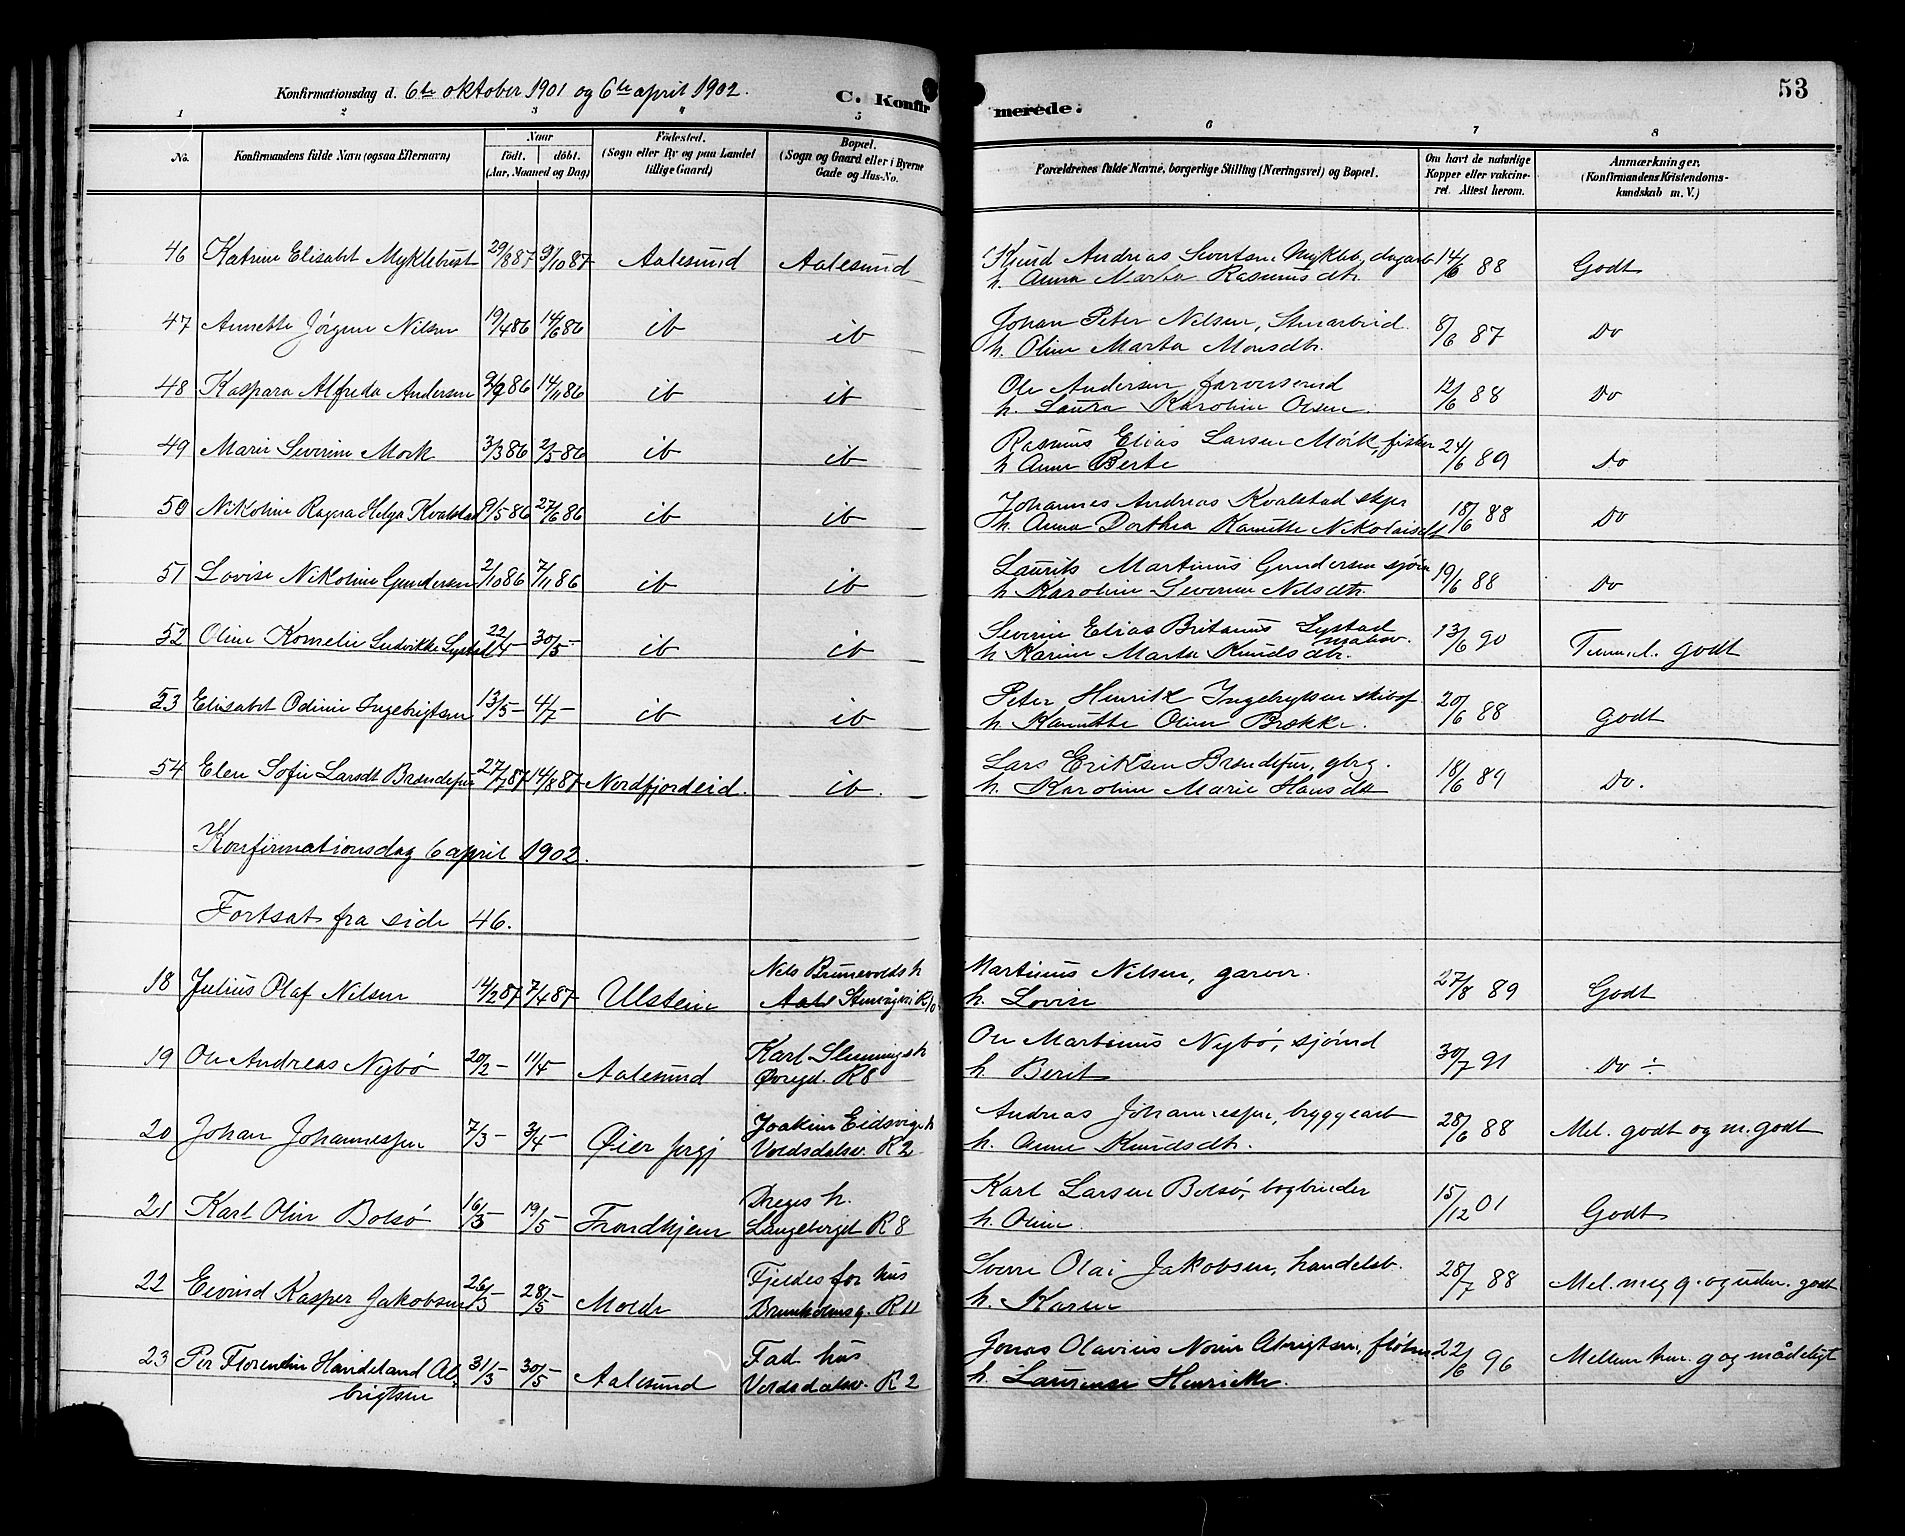 Konfirmationsdag d. 6te oktober 1901 og 6te april 1902.
C. Konfirmerede.
53
1 2 3 4 5 6 7 8
No. Konfirmandens fulde Navn (ogsaa Efternavn) Naar født. døbt. (Aar, Maaned og Dag) Fødested. (Sogn eller By og paa Landet tillige Gaard) Bopæl. (Sogn og Gaard eller i Byerne Gade og Hus-No. Forældrenes fulde Navne, borgerlige Stilling (Næringsvei) og Bopæl. Om havt de naturlige Kopper eller vakcineret. Attest herom. Anmærkninger. (Konfirmandens Kristendomskundskab m. V.)
46 Katrine Elisabet Myklebust 29/8 87 9/10 87 Aalesund Aalesund Knud Andreas Sivertsen Mykleb. dagarb 14/6 88 Godt
h. Anna Marta Rasmusdtr.
47 Annette Jørgine Nilsen 19/4 86 14/6 86 ib ib Johan Peter Nilsen, Stenarbeid. 8/6 87 Do
h. Oline Marta Monsdtr.
48 Kaspara Alfreda Andersen 2/9 86 14/11 86 ib ib Ole Andersen, farversvend 12/6 88 Do
h. Laura Karoline Olsen.
49 Marie Severine Mork 3/3 86 2/5 86 ib ib Rasmus Elias Larsen Mork, fisker 24/6 89 Do
h Anne Berte
50 Nikoline Ragna Helga Kvalstad 9/5 86 27/6 86 ib ib Johannes Andreas Kvalstad skpr 18/6 88 Do
h. Anna Dorthea Kanutte Nikolaisdt
51 Lovise Nikoline Gundersen 2/10 86 7/11 86 ib ib Laurits Martinus Gundersen sjøm 19/6 88 Do
h Karoline Severine Nilsdtr.
52 Oline Kornelie Ludvikke Lystad 22/4 – 30/5 – ib ib Severin Elias Britanus Lystad 13/6 90 Temmel. godt
h Karine Marta Knudsdtr.
53 Elisabet Odine Ingebrigtsen 13/5 – 4/7 – ib ib Peter Henrik Ingebrigtsen skibsf. 20/6 88 Godt
h Kanutte Oline Brække.
54 Elen Sofie Larsdt Brændefur 27/7 87 14/8 87 Nordfjordeid. ib. Lars Eriksen Brændefur, gbrg. 18/6 89 Do.
h. Karoline Marie Hansdt
Konfirmationsdag 6 april 1902.
Fortsat fra side 46.
18 Julius Olaf Nilsen 14/2 87 7/4 87 Ulstein Nils Brunevolds h Martinus Nilsen, garver. 27/8 89 Godt
Aale Stenvågvei R 10 h. Lovise
19 Ole Andreas Nybø 20/2 – 11/4 Aalesund Karl Slemnings h Ole Martinus Nybø, sjømd 30/7 91 Do ÷
Øvregd. R 8 h Berit
20 Johan Johannessen 7/3 – 3/4 – Øier prgj Joakim Eidsvigs h Andreas Johannessen, byggearb 28/6 88 Mel. godt og m. godt
Voldsdalsv. R 2 h. Anne Knudsdtr.
21 Karl Olin Bolsø 16/3 – 19/5 – Trondhjem Dreges h. Karl Larsen Bolsø, bogbinder 15/12 01 Godt
Langeberget R 8 h. Oline
22 Eivind Kasper Jakobsen 26/3 – 28/5 – Molde Fjeldes for hus Sverre Olai Jakobsen, handelsb. 28/7 88 Mel. meg g. og uden. godt
Brunholmsg. R 11 h. Karen
23 Per Florentin Handeland Al- 31/3 – 30/5 – Aalesund Fad. hus Jonas Olavius Norin Albrigtsen, fløtm. 22/6 96 Mellem hm. g og mådeligt
brigtsen Voldsdalsv. R 2 h. Laurense Henrikke.